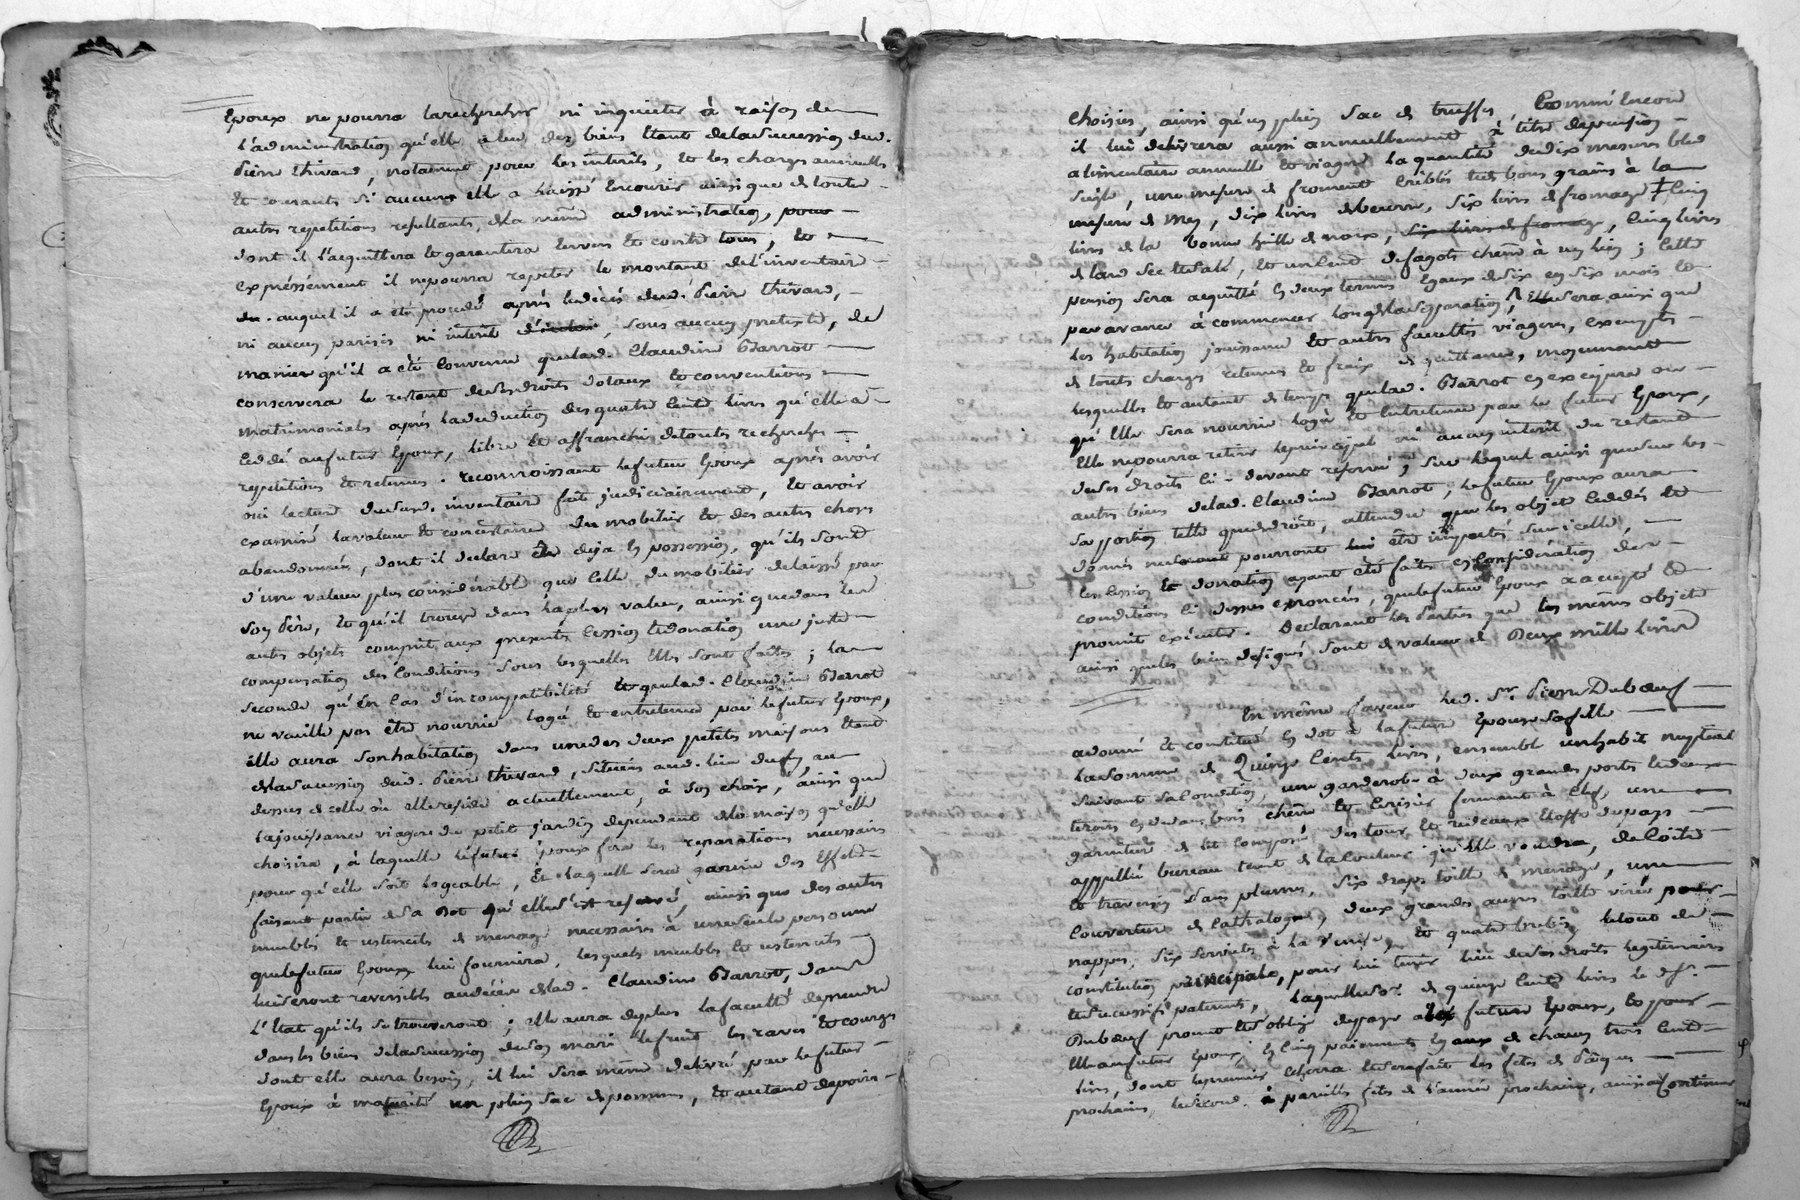 Epoux ne pourra la rechercher ni inquieter à raison de
l'administration qu'elle a eu des biens etant de la succession dud.
Pierre thivard, notament pour les interêts, et les charges annuelles
et courants si aucuns elle a laissé encourir ainsi que de toute
autres repetitions resultants, de la même administration, pour
dont il l'acquittera et garentira envers et contre tous, et
expréssément il ne pourra repeter le montant de l'inventaire
du. auquel il a été procedé après le décès dud. Pierre thivard,
ni aucun parisis ni interêt, sous aucun pretexte, de
maniere qu'il a été convenu que lad. Claudine Barrot
conservera le restant de ses droits dotaux et conventions
matrimoniales après la deduction des quatre cents livres qu'elle a
cedé au futur Epoux, libre et affranchis de toutes recherches
repetitions et retenues. reconnoissant le futur Epoux après avoir
oui lecture du susd. inventaire fait judiciairement, et avoir
examiné la valeur et consistance du mobilier et des autres choses
abandonnées, dont il declare être deja en possession, qu'ils sont
d'une valeur plus considérable que celle du mobilier delaissé par
son Père, et qu'il trouve dans la plus value, ainsi que dans les
autres objets compris aux presentes cession et donation une juste
compensation des conditions sous lesquelles elles sont faites; la
seconde qu'en cas d'incompatibilité et que lad. Claudine Barrot
ne veuille pas être nourrie logée et entretenue par le futur Epoux,
elle aura son habitation dans une des deux petites maisons etant
de la succession dud. Pierre thivard, situées aud. lieu du fay, au
dessus de celle où elle reside actuellement, à son choix, ainsi que
la jouissance viagere du petit jardin dependant de la maison qu'elle
choisira, à laquelle le futur Epoux fera les reparations necessaires
pour qu'elle soit logeable, et laquelle sera garnie des effets
faisant partie de sa dot qu'elle s'est reservé, ainsi que des autres
meubles et ustenciles de menage necessaires à une seule personne
que le futur Epoux lui fournira, lesquels meubles et ustenciles
lui seront reversibles au décès de lad. Claudine Barrot, dans
l'Etat qu'ils se trouveront; elle aura de plus la faculté de prendre
dans les biens de la succession de son mari le fruit les raves et courges
dont elle aura besoin, il lui sera même delivré par le futur
Epoux à maturité un plein sac de pommes, et autant de poires
choisies, ainsi qu'un plein sac de truffes Comme encore
il lui delivrera aussi annuellement à titre de pension
alimentaire annuelle et viagere la quantité de dix mesures bled
seigle, une mesure de froment criblés et de bons grains à la
mesure de , dix livres de beurre, six livres de fromage ‡ Cinq
livres de la bonne huile de noix, six livres de fromage, Cinq livres
de lard sec et salé, et un cent de fagots chêne à un lien; cette
pension sera acquittée en deux termes egaux de six en six mois et
par avance à commencer lors de la separation, Elle sera ainsi que
les habitation jouissance et autres facultés viageres, exemptes
de toutes charges retenues et frais de quittance, moyennant
lesquelles et autant de temps que lad. Barrot en exigera ou
qu'elle sera nourrie logée et entretenue par le futur Epoux,
Elle ne pourra retirer le principal ni aucun interêt du restant
de ses droits ci-devant reservé, sur lequel ainsi que sur les
autres biens de lad. Claudine Barrot, le futur Epoux aura
sa portion telle que de droit, attendu que les objets cedés et
donnés ne pourront lui être imputés sur icelle,
les cession et donation ayant été faites en Considération des
conditions ci dessus enoncées, que le futur Epoux a accepté et
promit exécuter. Declarant les Parties que les mêmes objets
ainsi que les biens designés sont de valeur de Deux mille livres
En même faveur led. Sr. Pierre Duboeuf
a donné et constitué en dot à la future Epouse sa fille
la somme de Quinze Cents livres, ensemble un habit nuptial
suivant sa condition, une garderobe à deux grandes portes et deux
tiroirs en devant, bois chêne et cerisier fermant à Clef, une
garniture de lit composé des tour et rideaux etoffe du pays
appellée bureau teint de la couleur qu'elle voudra, de Coitre
et traversin sans plumes, six draps toile de menage, une
Couverture de Cathalogne, deux grandes aunes toile pour
nappes, six serviettes à la Venise, et quatre brebis, le tout de
constitution principale, pour lui tenir lieu de ses droits legitimaires
et successifs paternels, laquelle somme de quinze cents livres le d. Sr.
Duboeuf promet et s'oblige de payer à la future Epouse, et pour
Elle au futur Epoux, en Cinq paiements Egaux de chacun trois cents
livres, dont le premier echerra et se fera aux fêtes de Pâques
prochaines, le second à pareilles fêtes de l'année prochaine, ainsi à Continuer